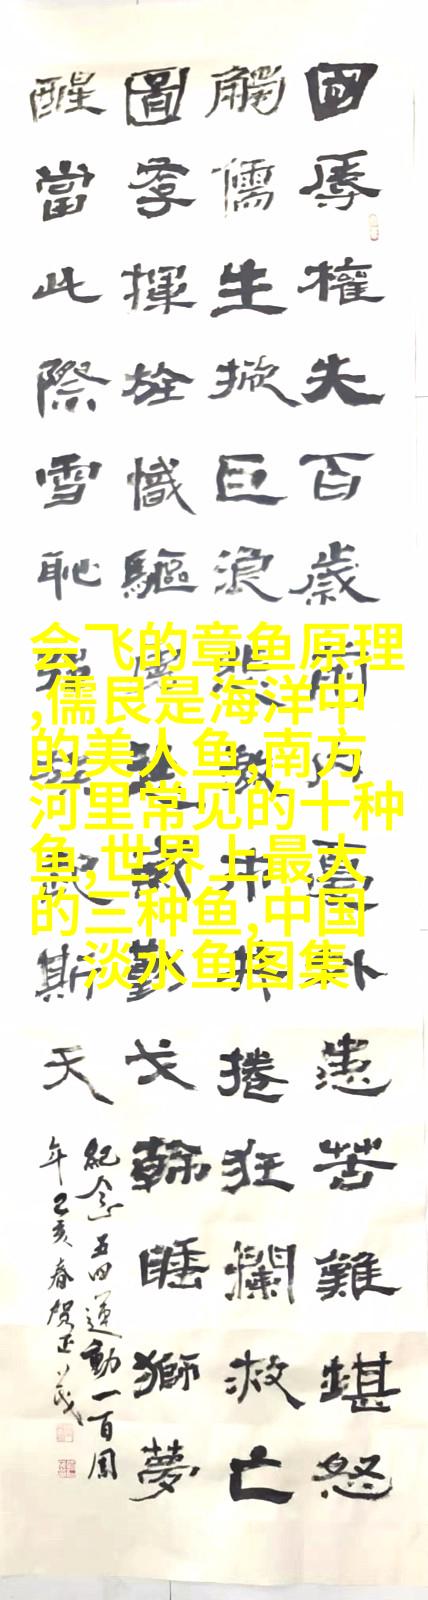 國辱權失百歲前内憂外患苦難堪怒
觸儒生掀巨浪捲狂瀾救亡
圖存揮旌幟驅戈斡睡獅夢
醒當此際雪恥强斯天
紀念五四運動一百周
年己亥春賀正茂
会飞的章鱼原理
,儒艮是海洋中
的美人鱼,南方
河里常见的十种
鱼,世界上最大
的三种鱼,中国
淡水鱼图集